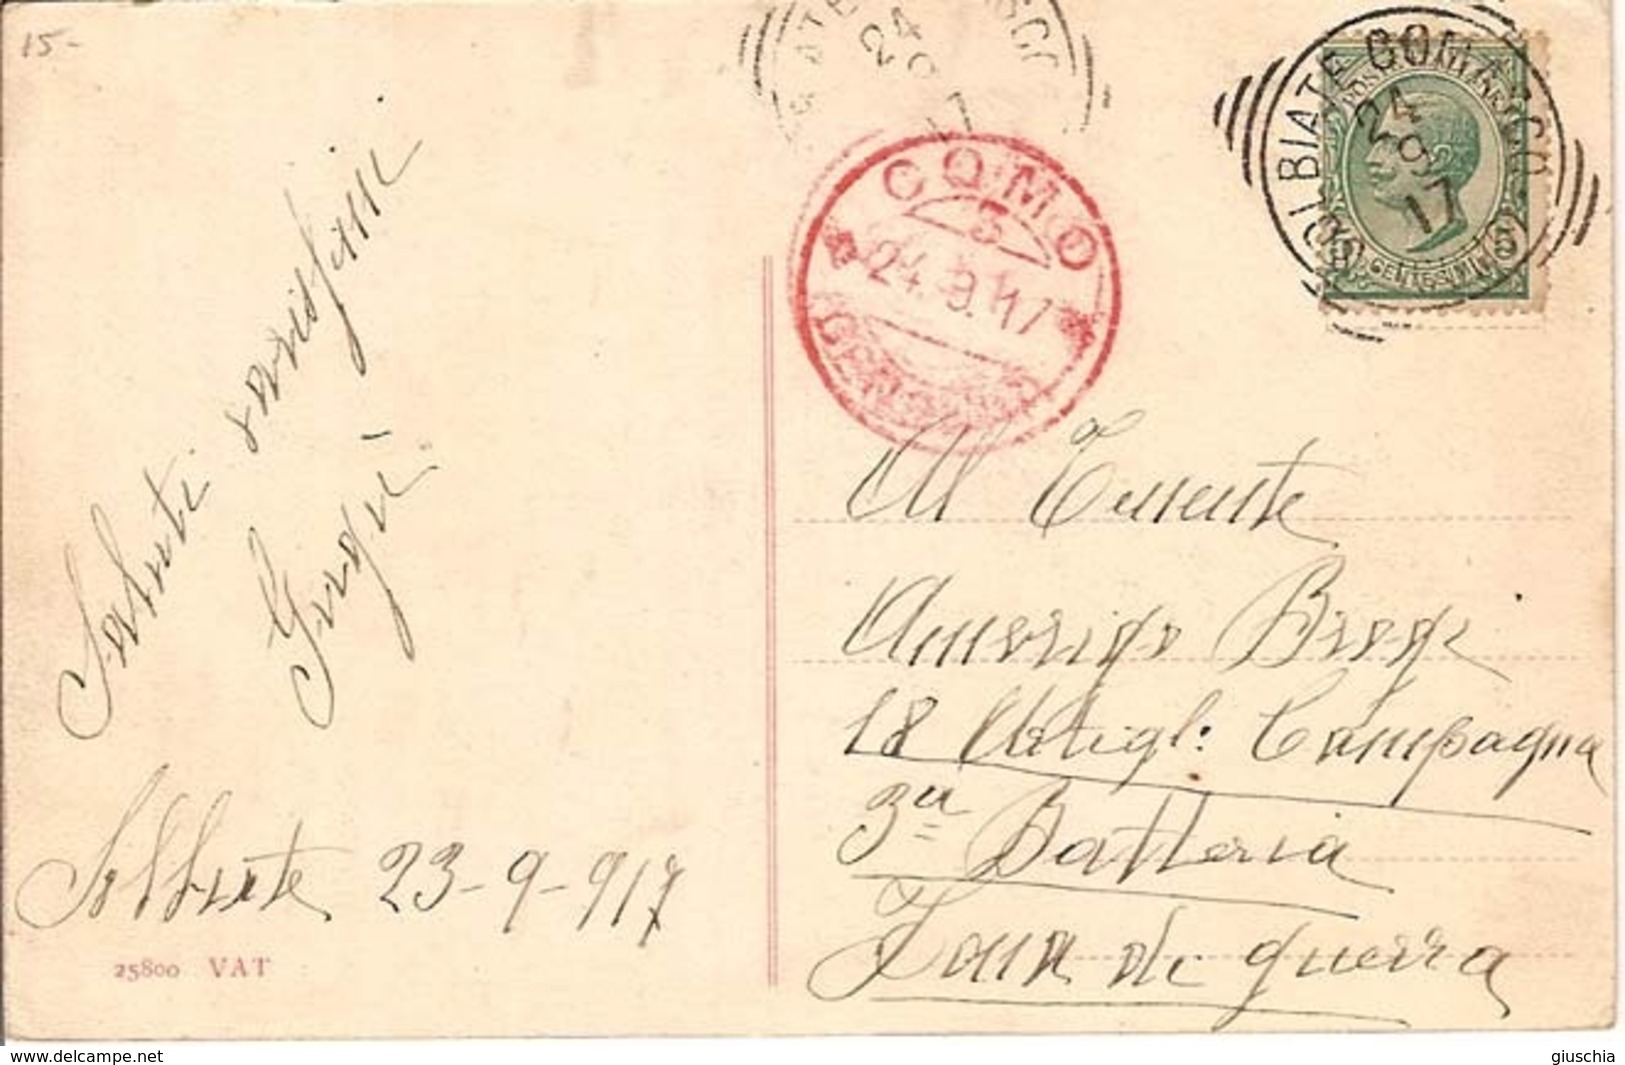 15-
24
9
17
OLBIATE COMASCO
24
9
17
POSTE ITALIANE
CENTESIMI 5
COMO
5
24.9.17
CENSURA
Saluti
Gingì
Solbiate 23-9-917
25800 VAT
Al Tenente
Amerigo Brogi
18 Artigl: Campagna
3a Batteria
Zona di guerra
www.delcampe.net
giuschia